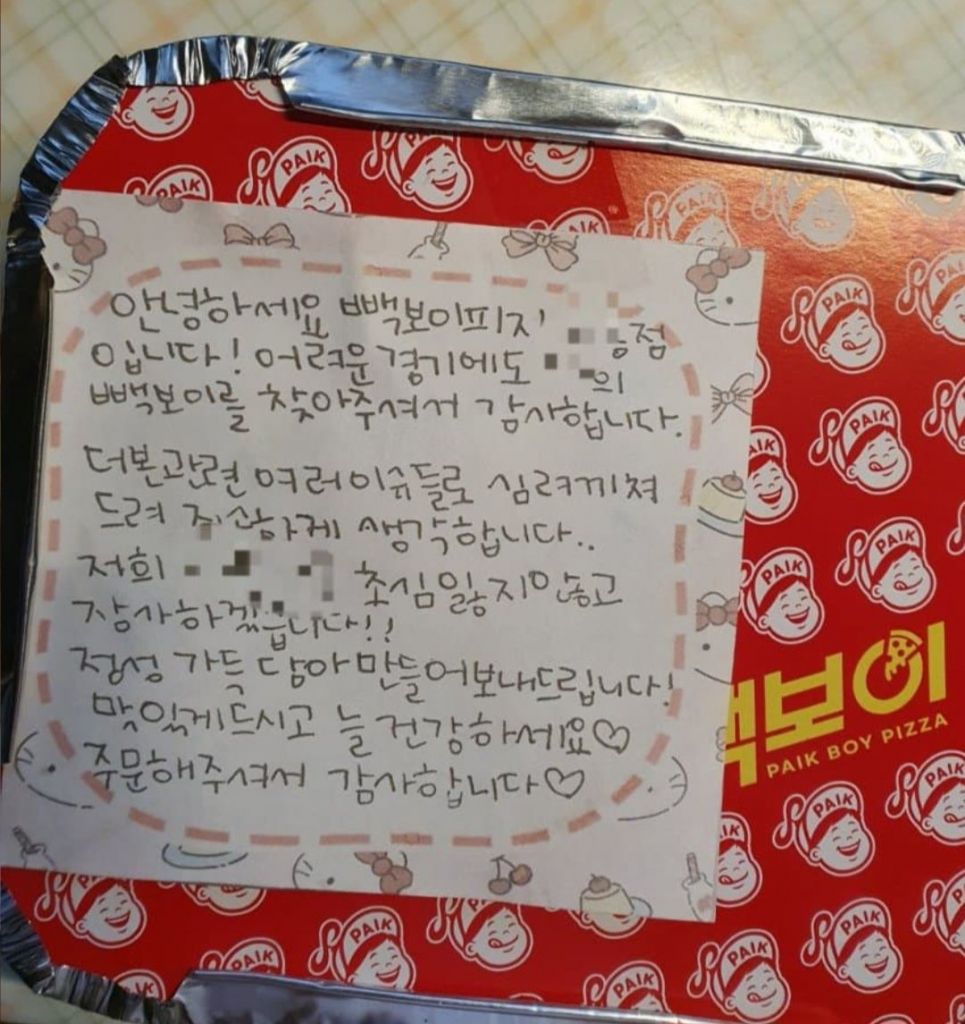 안녕하세요 빽보이피자 점
입니다! 어려운 경기에도 의
빽보이를 찾아주셔서 감사합니다.
더본관련 여러이슈들로 심려끼쳐
드려 죄산하게 생각합니다..
저희 초심잃지않고
장사하겠습니다!!
정성 가득 담아 만들어보내드립니다!
맛있게드시고 늘 건강하세요♡
주문해주셔서 감사합니다♡
빽보이
PAIK BOY PIZZA
PAIK
PAIK
PAIK
PAIK
PAIK
PAIK
PAIK
PAIK
PAIK
PAIK
PAIK
PAIK
PAIK
PAIK